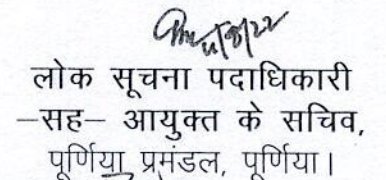 लोक सूचना पदाधिकारी
–सह– आयुक्त के सचिव,
पूर्णिया प्रमंडल, पूर्णिया।